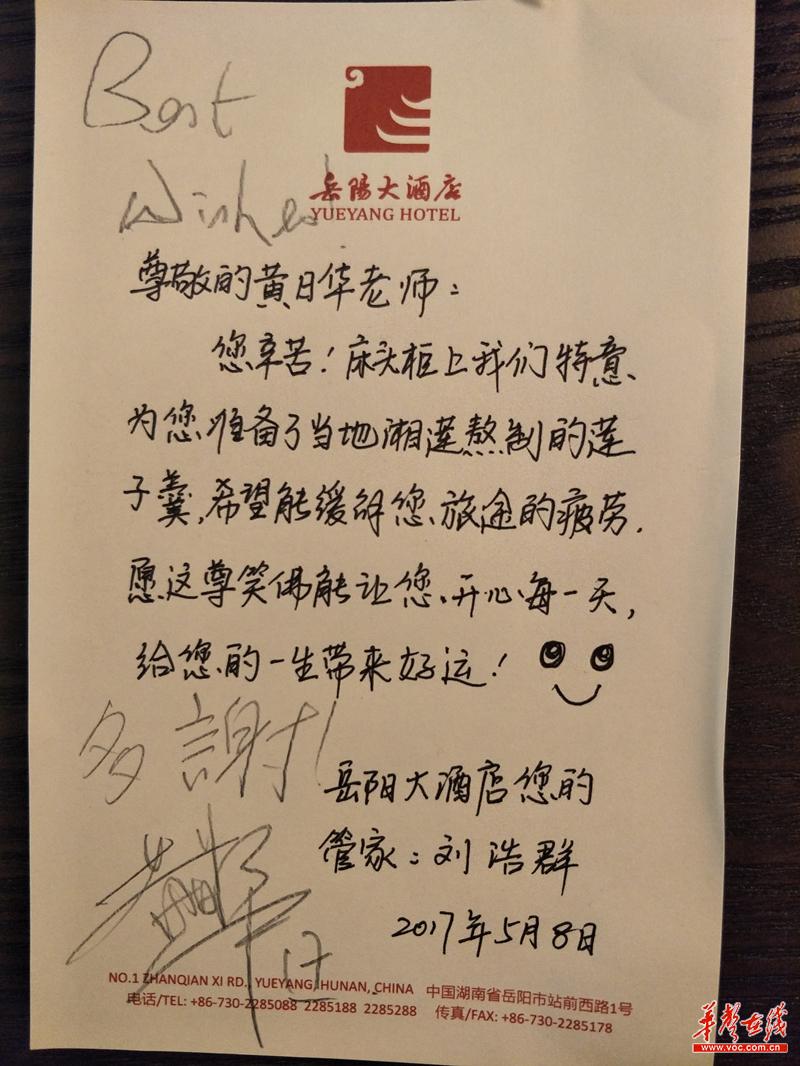 Best
Wishes
岳陽大酒店
YUEYANG HOTEL
尊敬的黄日华老师：
您辛苦！床头柜上我们特意
为您准备了当地湘莲熬制的莲
子羹，希望能缓解您旅途的疲劳.
愿这尊笑佛能让您开心每一天，
给您的一生带来好运！
多謝！
岳阳大酒店您的
管家：刘浩群
2017年5月8日
17
NO.1 ZHANQIAN XI RD., YUEYANG, HUNAN, CHINA 中国湖南省岳阳市站前西路1号
电话/TEL: +86-730-2285088 2285188 2285288 传真/FAX: +86-730-2285178
华声在线
www.voc.com.cn